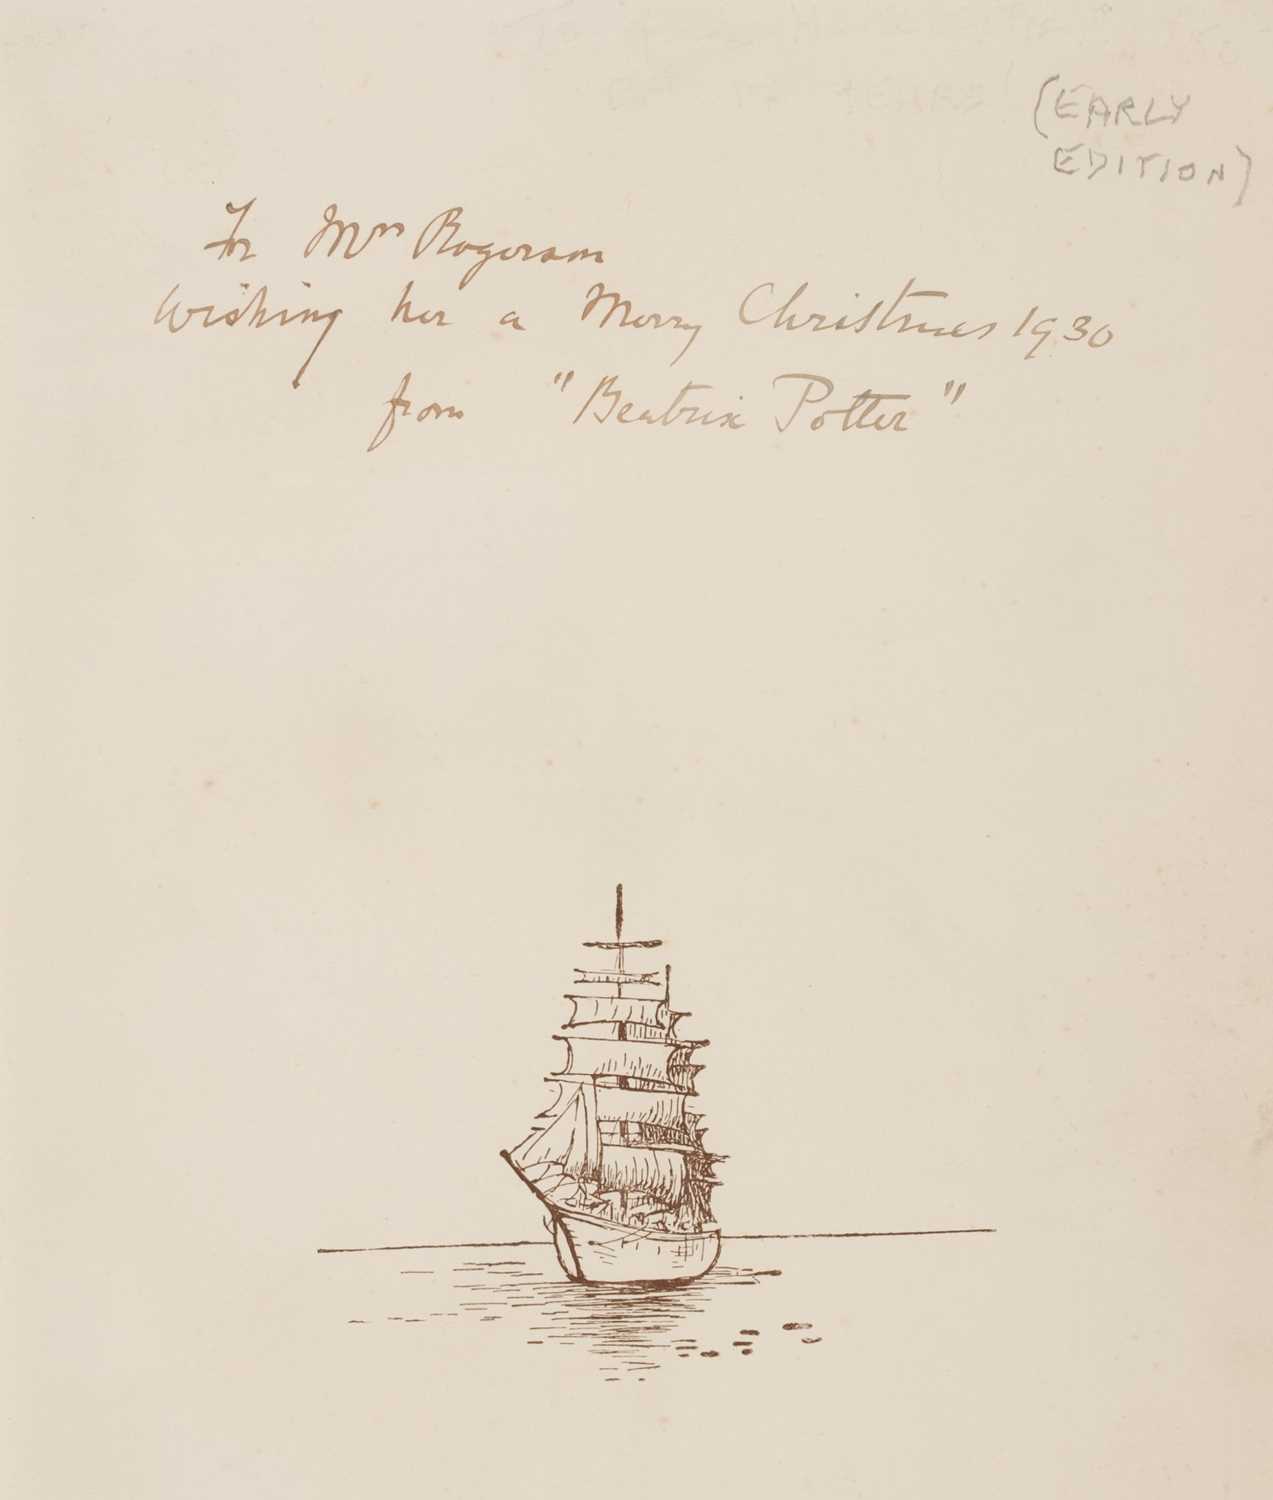 (EARLY
EDITION)
For Mrs Rogerson
Wishing her a Merry Christmas 1930
from "Beatrix Potter"